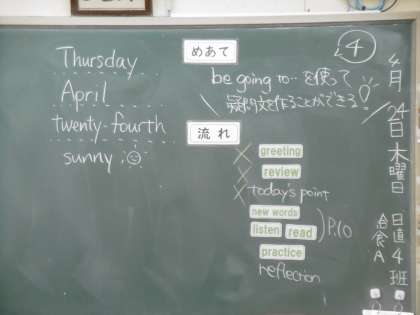 Thursday
April
twenty-fourth
sunny
めあて
④
be going to… を使って
疑問文を作ることができる!
流れ
greeting
review
today's point
new words
listen read
P.10
practice
reflection
4月24日木曜日
日直4班
給食A